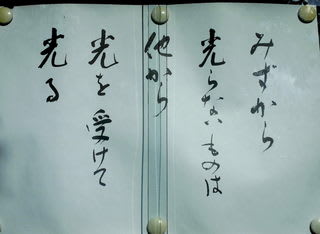 みずから
光らないものは
他から
光を受けて
光る